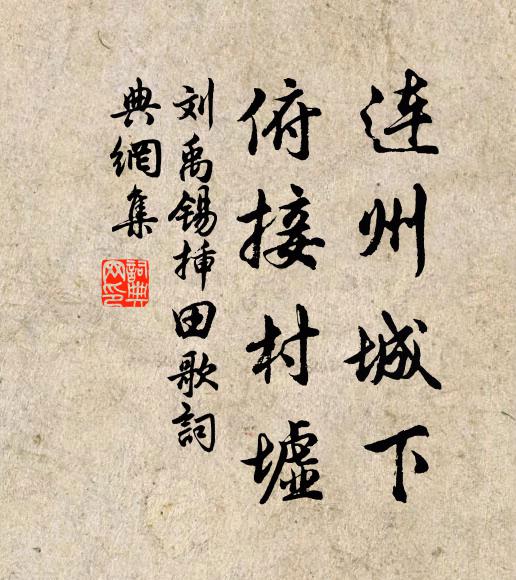 连州城下
俯接村墟
刘禹锡插田歌词
典網集
詞典
网印